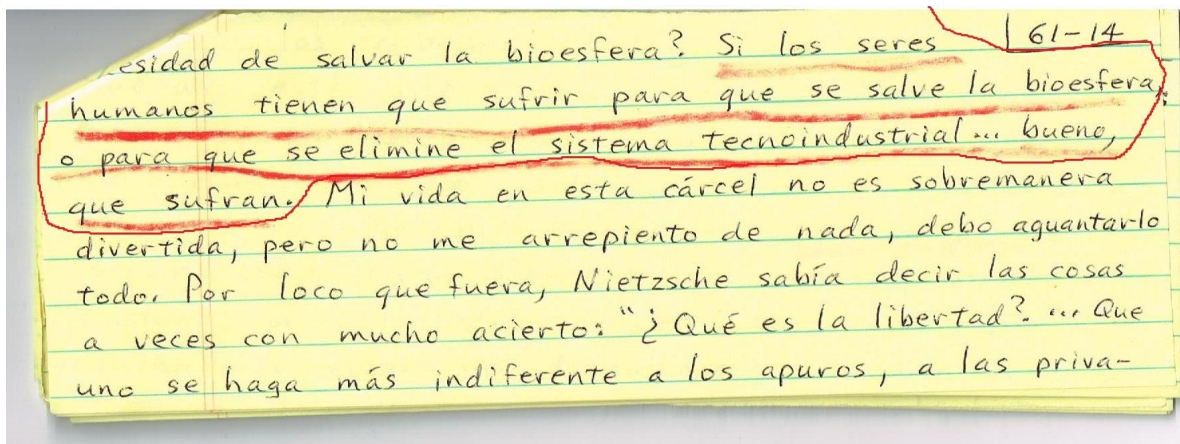 esidad de salvar la bioesfera? Si los seres
61-14
humanos tienen que sufrir para que se salve la bioesfera,
o para que se elimine el sistema tecnoindustrial... bueno,
que sufran. Mi vida en esta cárcel no es sobremanera
divertida, pero no me arrepiento de nada, debo aguantarlo
todo. Por loco que fuera, Nietzsche sabía decir las cosas
a veces con mucho acierto: "¿Qué es la libertad? ... Que
uno se haga más indiferente a los apuros, a las priva-